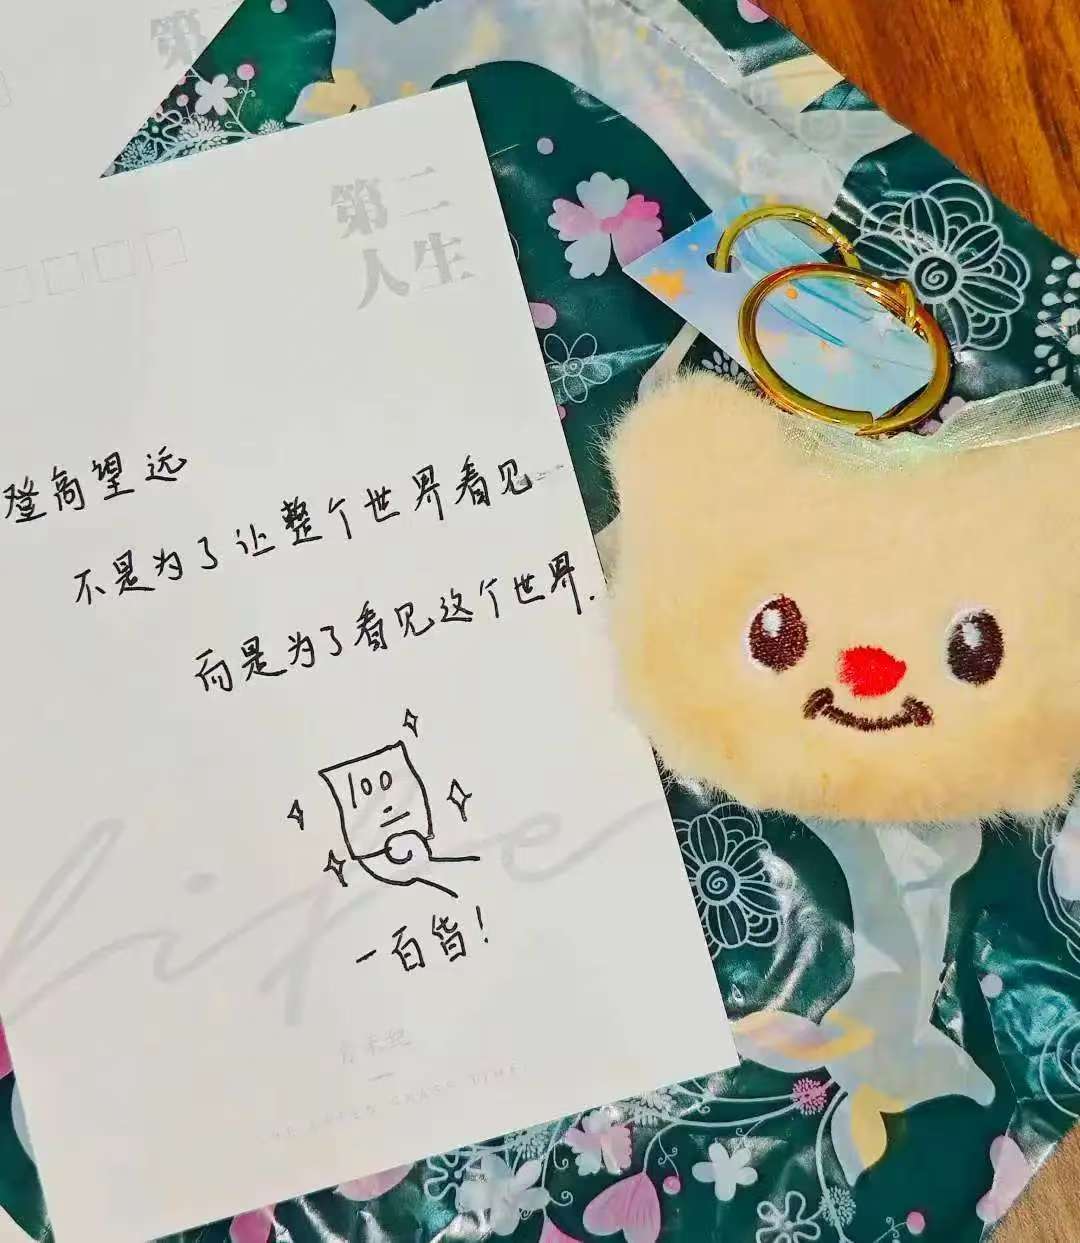 第
第二
人生
登高望远
不是为了让整个世界看见
而是为了看见这个世界.
100
一百皆!
life
青未纪
THE GREEN GRASS TIME